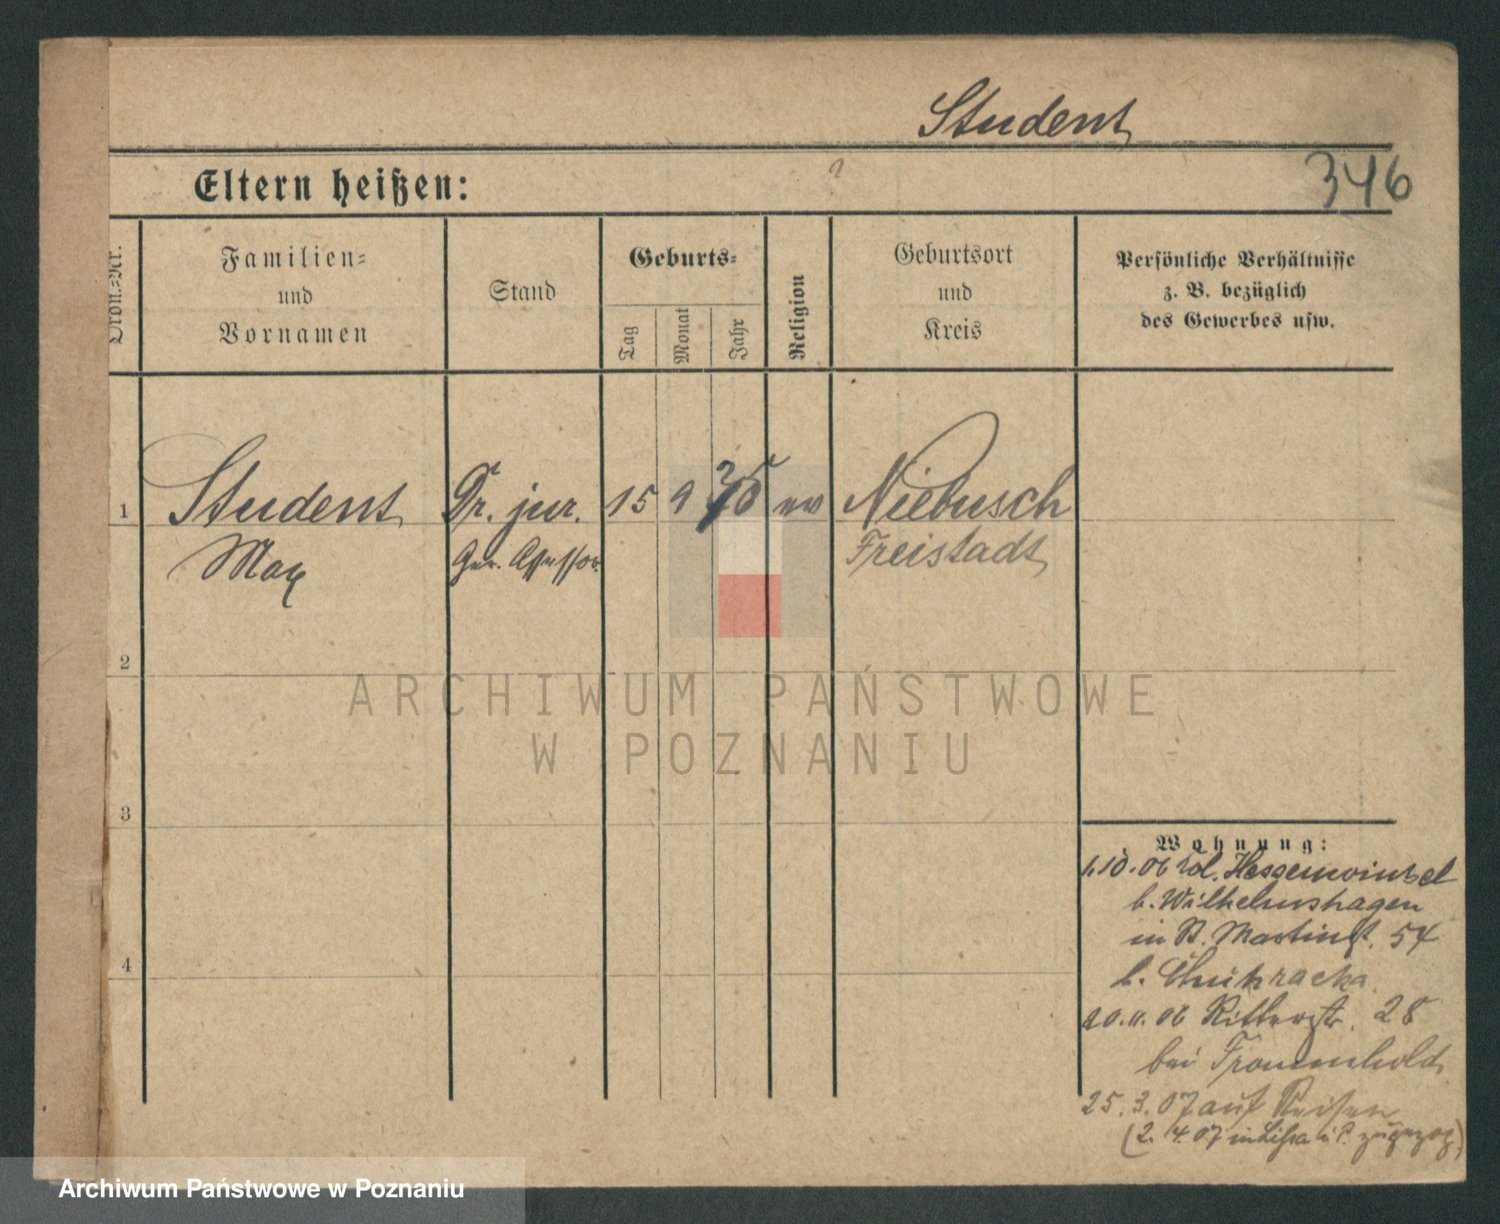 Student
346
Eltern heißen:
Ordn.-Nr.
Familien-
und
Vornamen
Stand
Geburts-
Tag
Monat
Jahr
Religion
Geburtsort
und
Kreis
Persönliche Verhältnisse
z. B. bezüglich
des Gewerbes usw.
1
Student
Dr. jur.
15
9
75
ev
Niebusch
Max
Ger. Assessor
Freistadt
2
ARCHIWUM PAŃSTWOWE
W POZNANIU
3
Wohnung:
1.10.06
b. Wilhelmshagen
in St. Martinst. 54
b.
20.11.06 Ritterstr. 28
bei Frommhold
25.3.07 auf Reisen
(2. 4. 07 in Lissa i. P. zugezog)
4
Archiwum Państwowe w Poznaniu